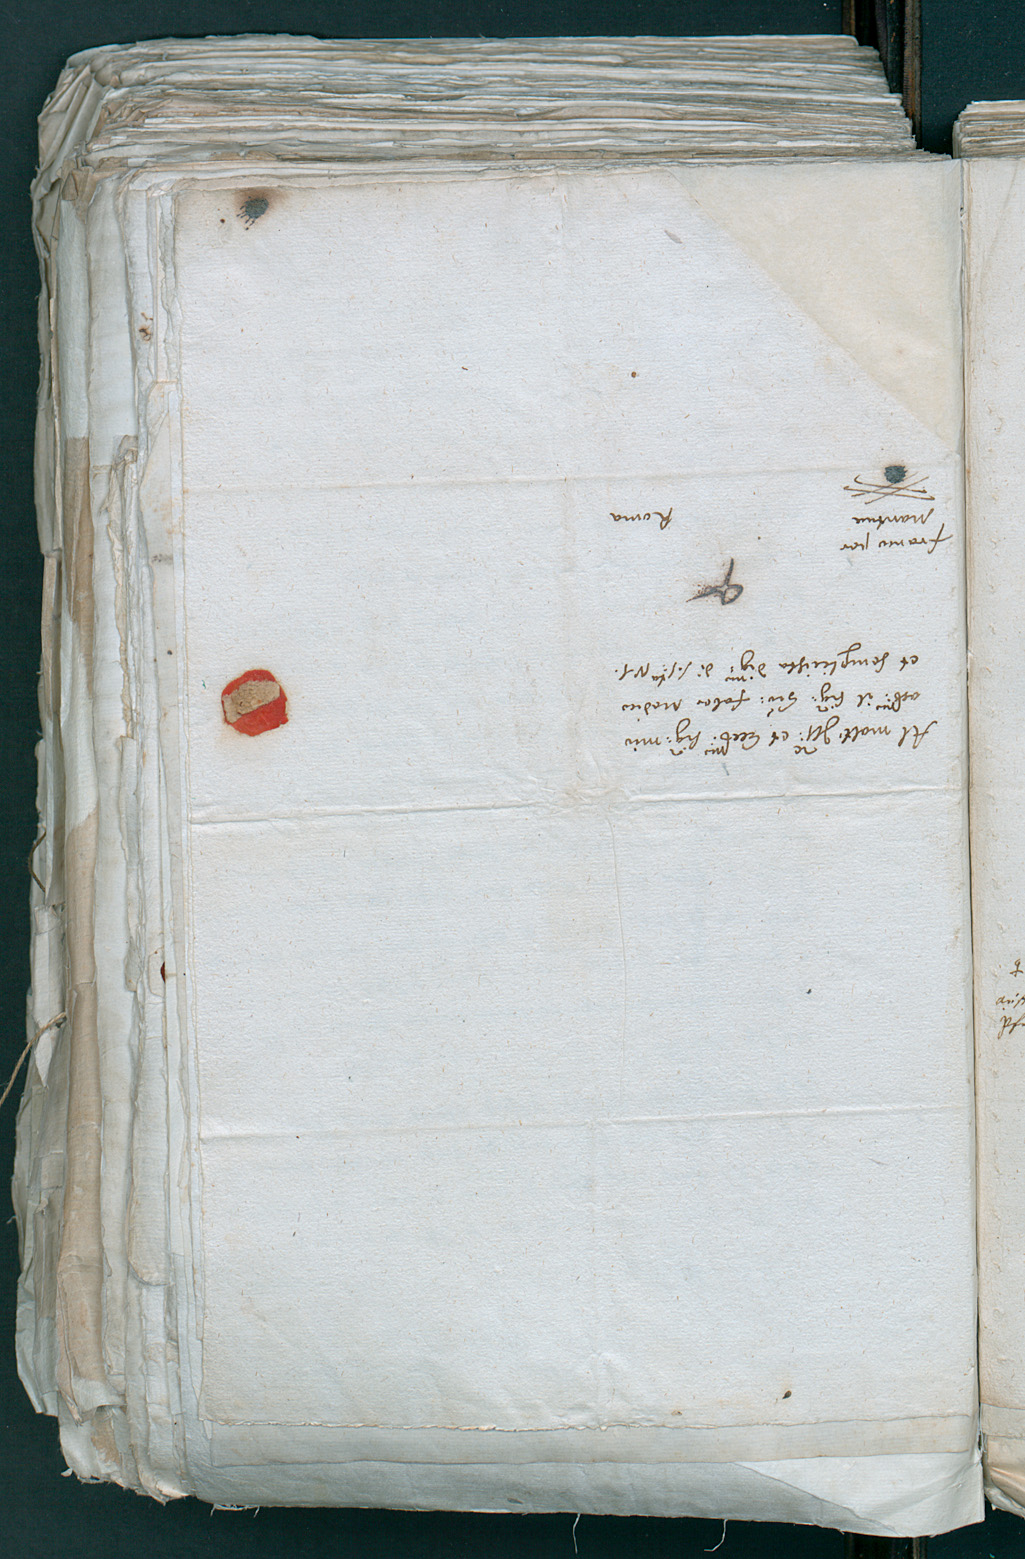 Al molt. Ill.re et Ecc.mo sig.r mio
oss.mo il sig.r Gio: fabro Medico
et semplicista dig.mo di S. S.ta
Roma
franco per
Mantua